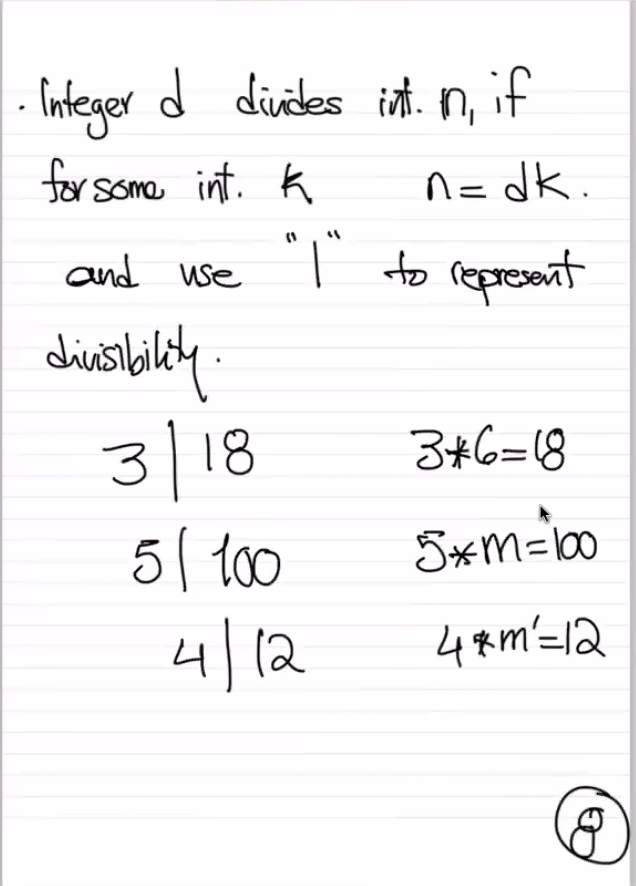 . Integer d divides int. n, if
for some int. k n = dk.
and use "|" to represent
divisibility.
3 | 18 3*6=18
5 | 100 5*m=100
4 | 12 4*m'=12
8